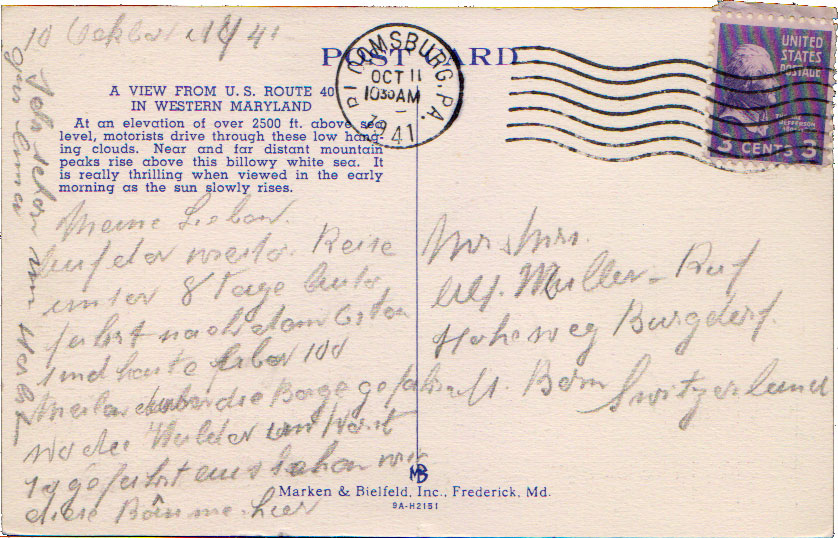 10 Oktober 1941
POST CARD
A VIEW FROM U.S. ROUTE 40
IN WESTERN MARYLAND
At an elevation of over 2500 ft. above sea
level, motorists drive through these low hang-
ing clouds. Near and far distant mountain
peaks rise above this billowy white sea. It
is really thrilling when viewed in the early
morning as the sun slowly rises.
BLOOMSBURG, PA.
OCT 11
10 30 AM
1941
UNITED
STATES
POSTAGE
3 CENTS 3
Meine Lieben.
Auf der Reise
unser 8 Tage Auto
fahrt nach dem Osten
und heute über 100
Meilen über die Berge gefahren
wo die Wälder
aussehen wie
diese Bäume hier
Mr & Mrs.
Alf. Muller-Ruf
Hoheweg Burgdorf.
Kt. Bern Switzerland
MB
Marken & Bielfeld, Inc., Frederick, Md.
9A-H2151